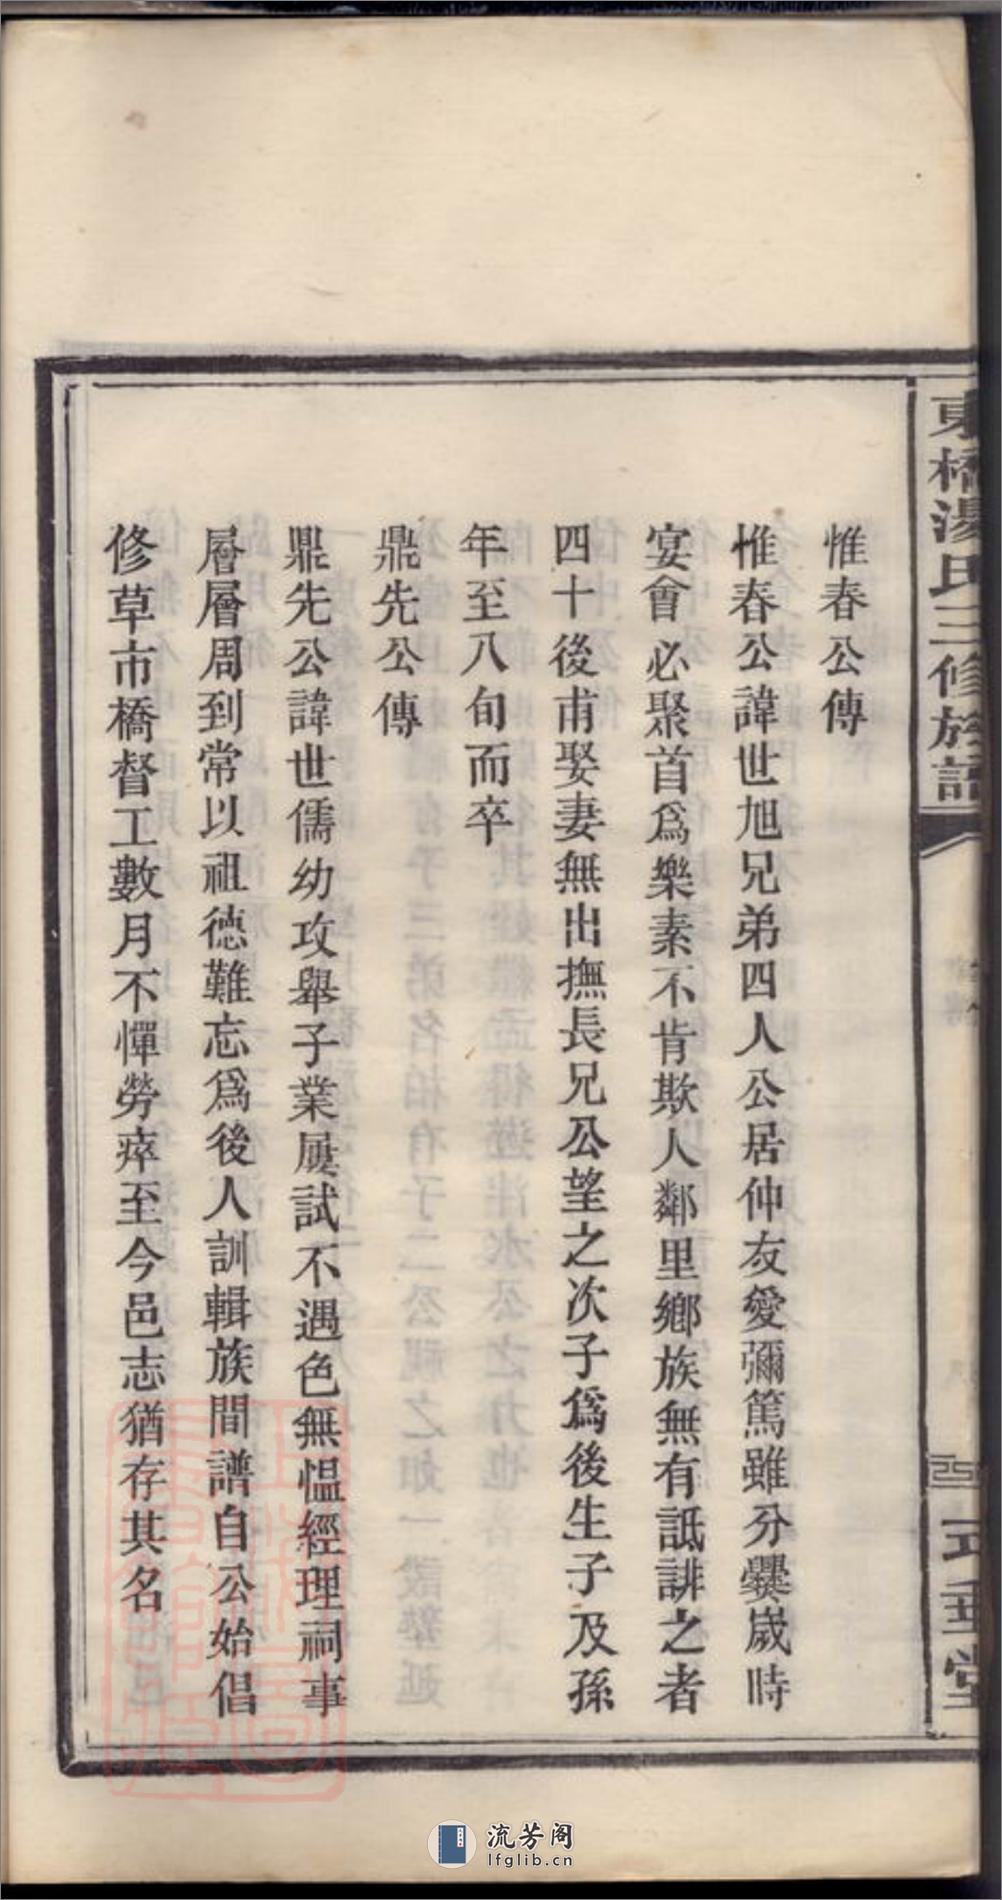 惟春公傳
惟春公諱世旭兄弟四人公居仲友愛彌篤雖分爨歲時
宴會必聚首爲樂素不肯欺人鄰里鄉族無有詆誹之者
四十後甫娶妻無出撫長兄公望之次子爲後生子及孫
年至八旬而卒
鼎先公傳
鼎先公諱世儒幼攻舉子業屢試不遇色無慍經理祠事
層層周到常以祖德難忘爲後人訓輯族間譜自公始倡
修草市橋督工數月不憚勞瘁至今邑志猶存其名
東橋湯氏三修族譜
流芳阁
lfglib.cn